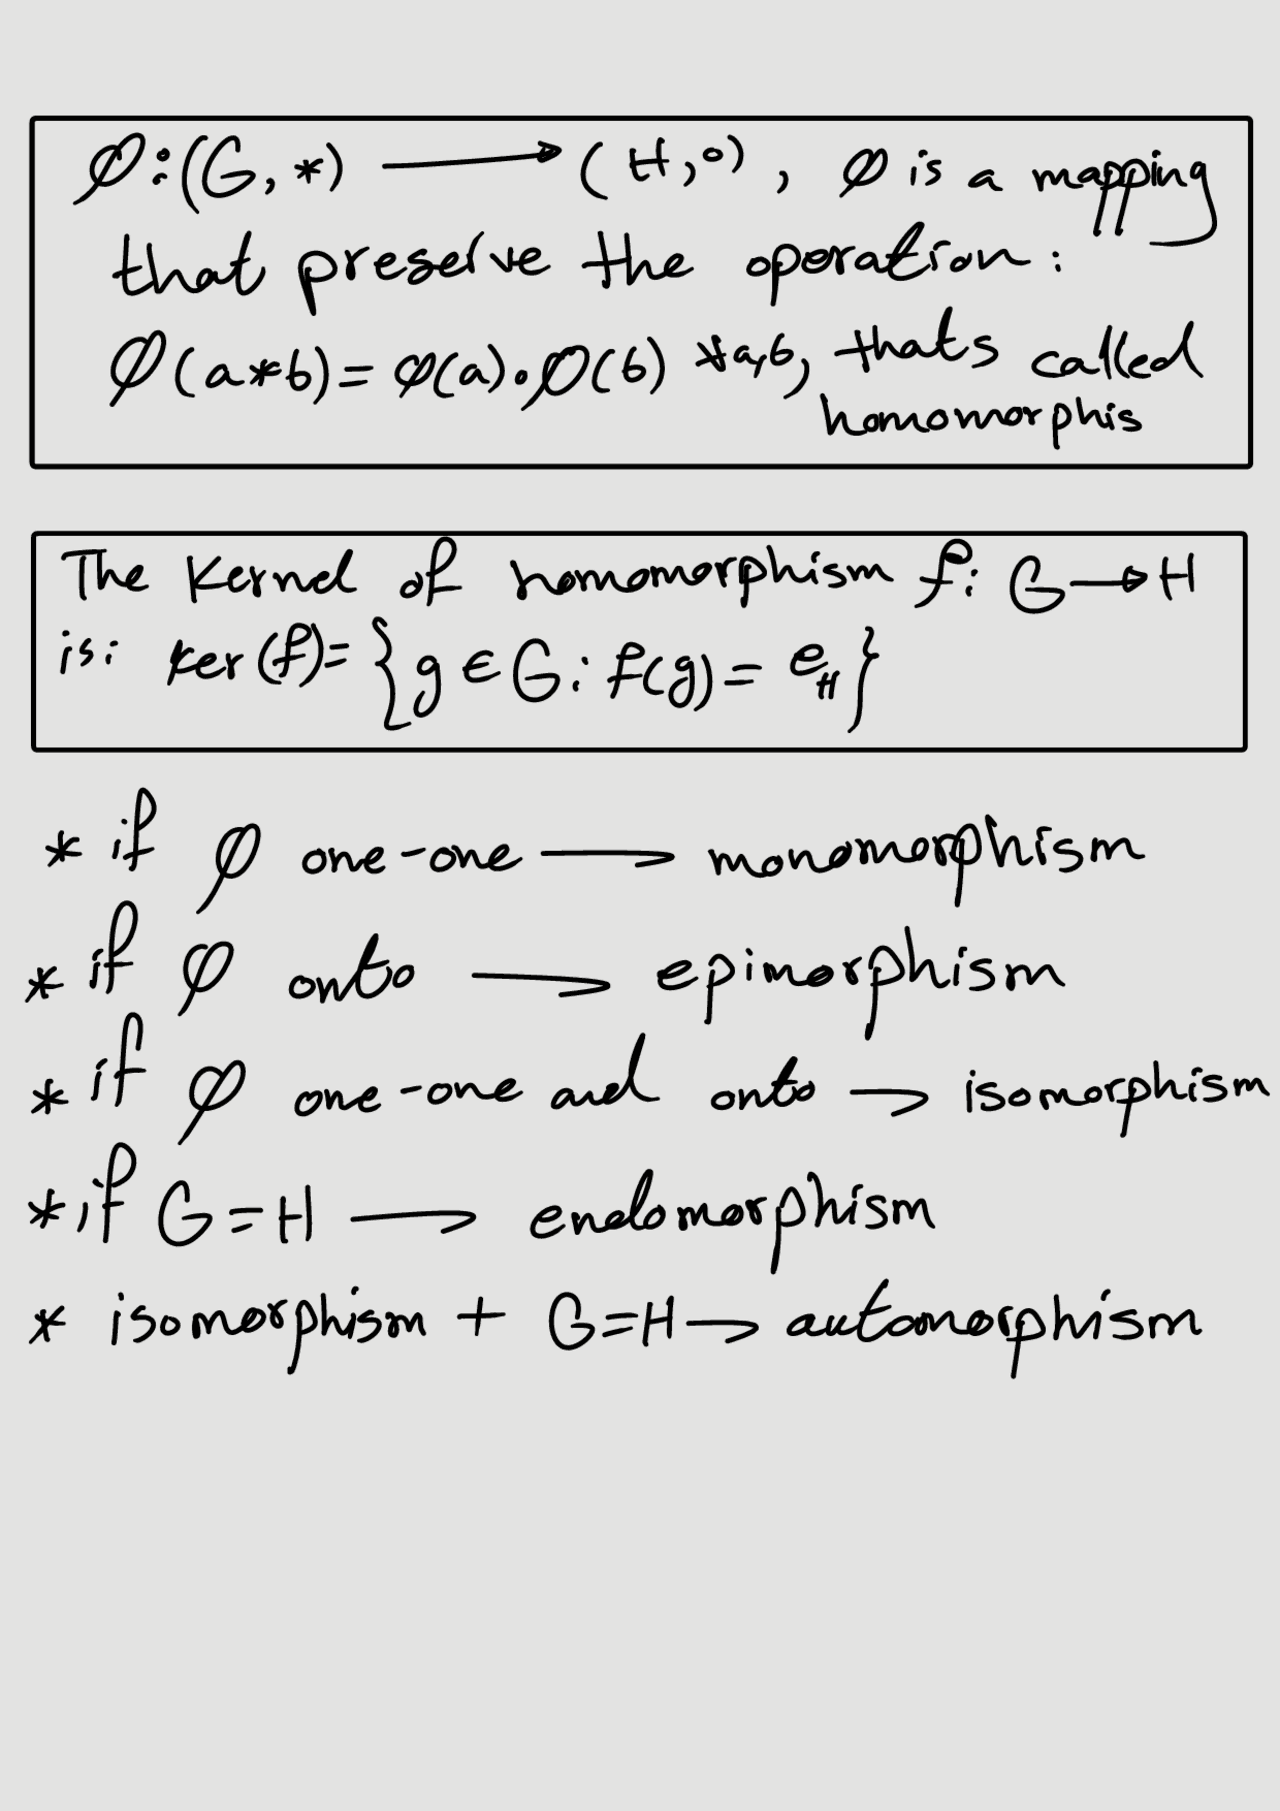 Ø:(G, *) ⟶ (H, ∘), Ø is a mapping
that preserve the operation:
Ø(a*b)= Ø(a)∘Ø(b) ∀a,b, thats called
homomorphis
The Kernel of homomorphism f: G→H
is: ker(f)= {g ∈ G: f(g)= e_H}
* if Ø one-one → monomorphism
* if Ø onto → epimorphism
* if Ø one-one and onto → isomorphism
* if G=H → endomorphism
* isomorphism + G=H → automorphism